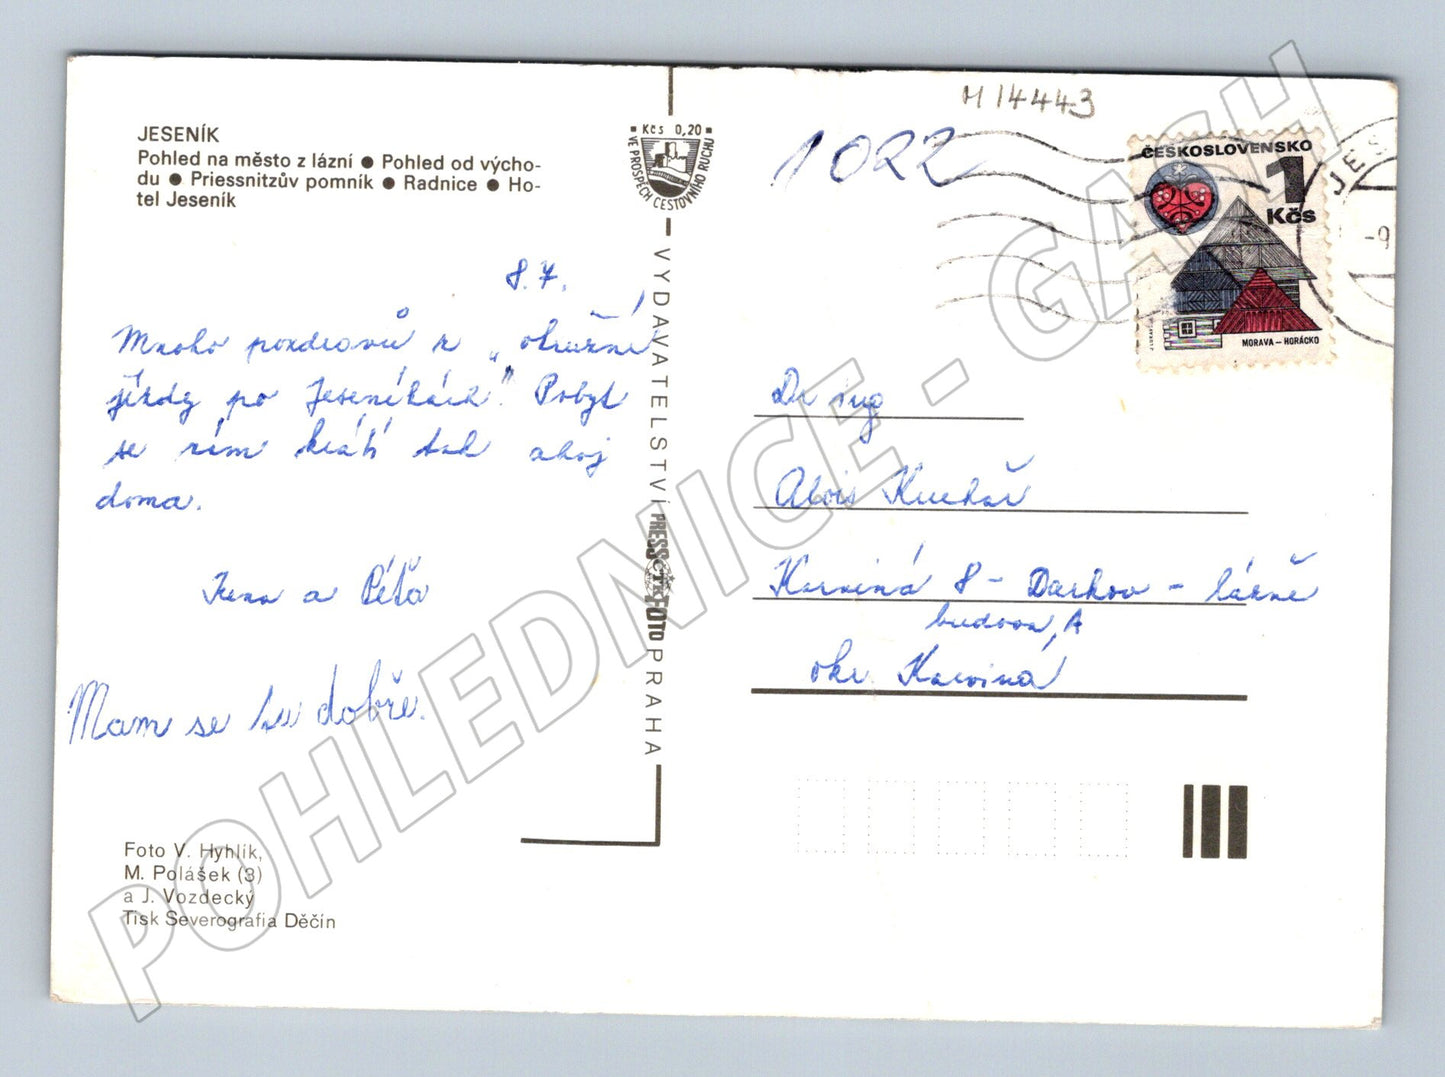 JESENÍK
Pohled na město z lázní ● Pohled od výcho-
du ● Priessnitzův pomník ● Radnice ● Ho-
tel Jeseník
Kčs 0,20
VE PROSPĚCH CESTOVNÍHO RUCHU
M 14443
1022
ČESKOSLOVENSKO
1
Kčs
MORAVA – HORÁCKO
JES
-9
8. 7.
Mnoho pozdravů z „okružní
jízdy po Jeseníkách". Pobyt
se nám krátí tak ahoj
doma.
Irena a Péťa
Mám se tu dobře.
VYDAVATELSTVÍ PRESSFOTO PRAHA
ČTK
Dr ing
Alois Kuchař
Karviná 8 - Darkov - lázně
budova A
okr. Karviná
Foto V. Hyhlík,
M. Polášek (3)
a J. Vozdecký
Tisk Severografia Děčín
POHLEDNICE - GASH